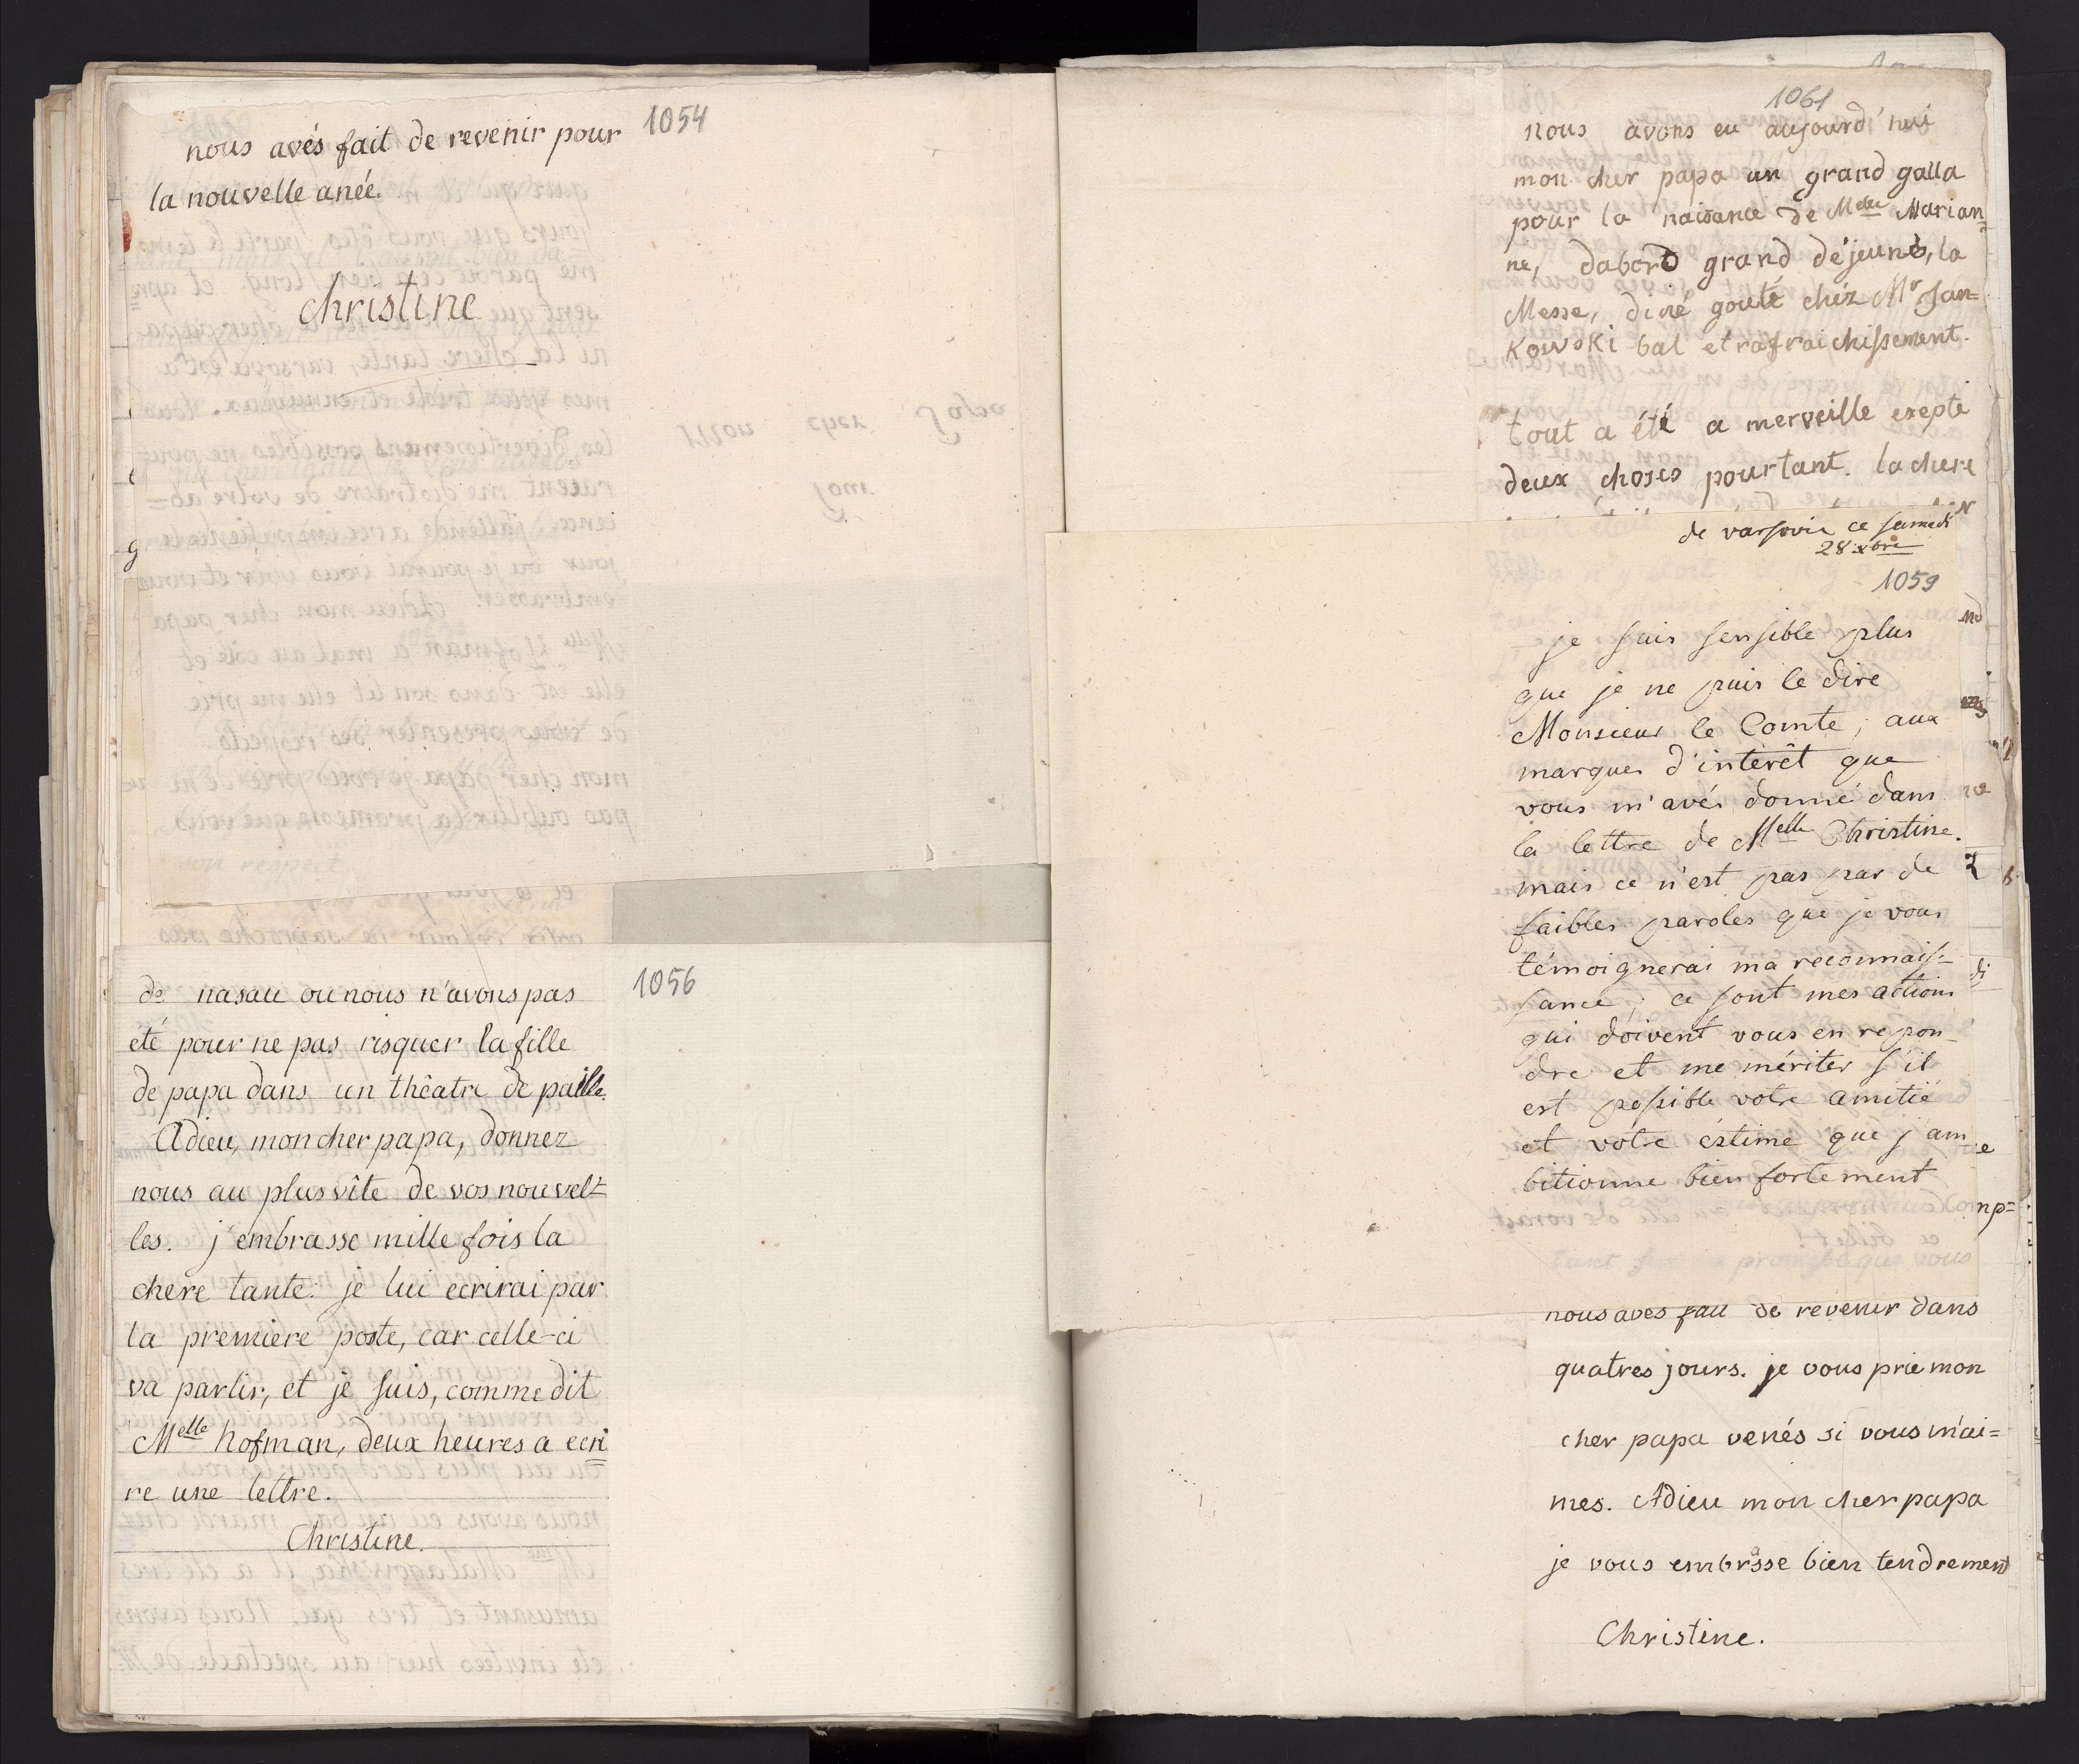 1054
nous avés fait de revenir pour
la nouvelle anée.
christine
1056
de nasau ou nous n'avons pas
été pour ne pas risquer la fille
de papa dans un thêatre de paille.
Adieu, mon cher papa, donnez
nous au plus vîte de vos nouvel=
les. j'embrasse mille fois la
chere tante: je lui ecrirai par
la premiere poste, car celle-ci
va partir, et je suis, comme dit
Melle hofman, deux heures a ecri
re une lettre.
Christine.
1061
nous avons eu aujourd'hui
mon cher papa un grand galla
pour la naisance de Melle Marian=
ne, dabord grand déjeuné, la
Messe, diné gouté chéz Mr Jan=
Kowski bal et rafraichissement.
tout a été a merveille exepté
deux choses pourtant. la chere
de varsovie ce samedi
28 xbre
1059
je suis sensible plus
que je ne puis le dire
Monsieur le Comte, aux
marques d'intérêt que
vous m'avés donné dans
la lettre de Melle Christine.
mais ce n'est pas par de
faibles paroles que je vous
témoignerai ma reconnais=
sance; ce sont mes actions
qui doivent vous en repon=
dre et me mériter s'il
est possible votre amitié
et votre éstime que j'am
bitionne bien fortement
nous avés fait de revenir dans
quatres jours. je vous prie mon
cher papa venés si vous m'ai=
mes. Adieu mon cher papa
je vous embrasse bien tendrement
Christine.